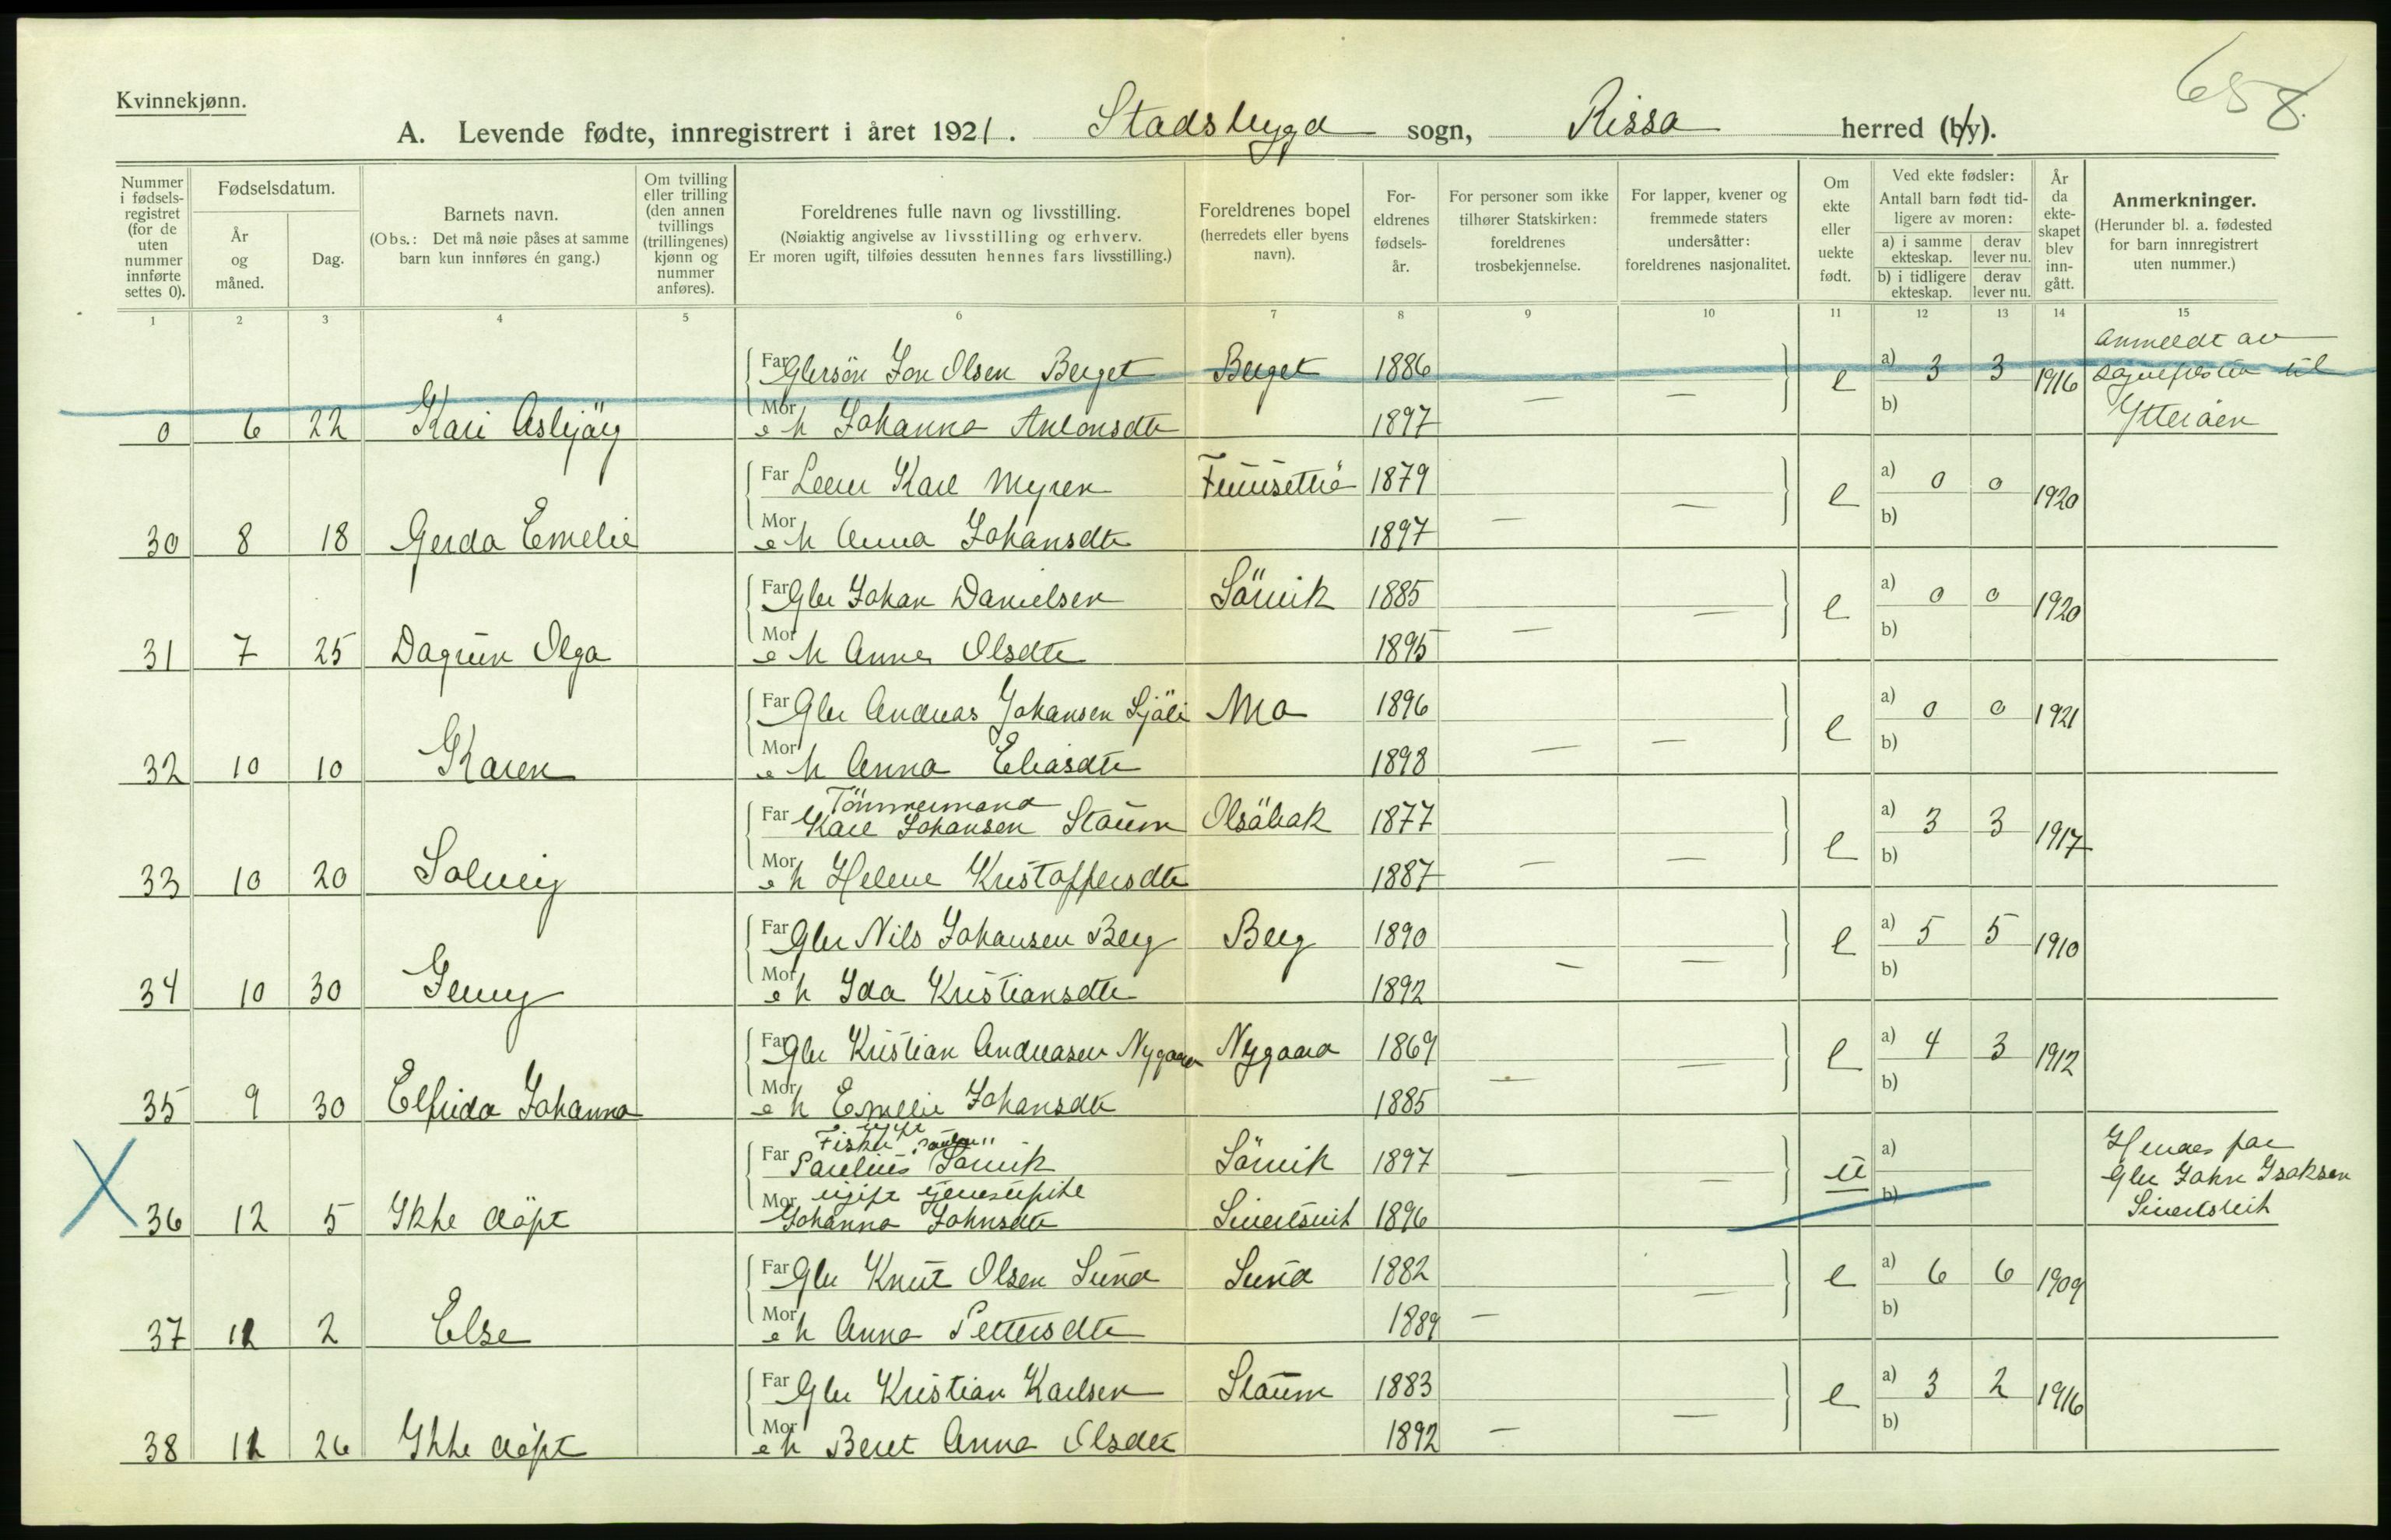 658.
Kvinnekjønn.
A. Levende fødte, innregistrert i året 1921. Stadsbygd sogn, Rissa herred (by).
Nummer i fødselsregistret (for de uten nummer innførte settes 0).
Fødselsdatum.
År og måned.
Dag.
Barnets navn.
(Obs.: Det må nøie påses at samme barn kun innføres én gang.)
Om tvilling eller trilling (den annen tvillings (trillingenes) kjønn og nummer anføres).
Foreldrenes fulle navn og livsstilling.
(Nøiaktig angivelse av livsstilling og erhverv.
Er moren ugift, tilføies dessuten hennes fars livsstilling.)
Foreldrenes bopel (herredets eller byens navn).
Foreldrenes fødselsår.
For personer som ikke tilhører Statskirken: foreldrenes trosbekjennelse.
For lapper, kvener og fremmede staters undersåtter: foreldrenes nasjonalitet.
Om ekte eller uekte født.
Ved ekte fødsler:
Antall barn født tidligere av moren:
a) i samme ekteskap.
derav lever nu.
b) i tidligere ekteskap.
derav lever nu.
År da ekteskapet blev inngått.
Anmerkninger.
(Herunder bl. a. fødested for barn innregistrert uten nummer.)
1 2 3 4 5 6 7 8 9 10 11 12 13 14 15
Far Jon Olsen Berget Berget 1886 e a) 3 3 1916 Anmeldt av
0 6 22 Kari Asbjörg Mor Johanna Antonsdtr 1897 b) til Ytteröen
Far Karl Myren 1879 e a) 0 0 1920
30 8 18 Gerda Emelie Mor Anna Johansdtr 1897 b)
Far Gbr Johan Danielsen Sörvik 1885 e a) 0 0 1920
31 7 25 Dagrun Olga Mor Anna Olsdtr 1895 b)
Far Gbr Andreas Johansen Mo 1896 e a) 0 0 1921
32 10 10 Karen Mor Anna Eliasdtr 1898 b)
Tömmermand
Far Karl Johansen Staum Olsöbak 1877 e a) 3 3 1917
33 10 20 Solveig Mor Helene Kristoffersdtr 1887 b)
Far Gbr Nils Johansen Berg Berg 1890 e a) 5 5 1910
34 10 30 Jenny Mor Ida Kristiansdtr 1892 b)
Far Gbr Kristian Andreasen Nygaard Nygaard 1869 e a) 4 3 1912
35 9 30 Elfrida Johanna Mor Emelie Johansdtr 1885 b)
Fisker
Far Paulius Sörvik Sörvik 1897 u a) Hendes far
ugift tjenestepike
36 12 5 Ikke döpt Mor Johanna Johnsdtr Sivertsvik 1896 b) Gbr John Isaksen Sivertsvik
Far Gbr Knut Olsen Sund Sund 1882 e a) 6 6 1909
37 12 2 Else Mor Anna Pettersdtr 1889 b)
Far Gbr Kristian Karlsen Staum 1883 e a) 3 2 1916
38 12 26 Ikke döpt Mor Beret Anna Olsdtr 1892 b)